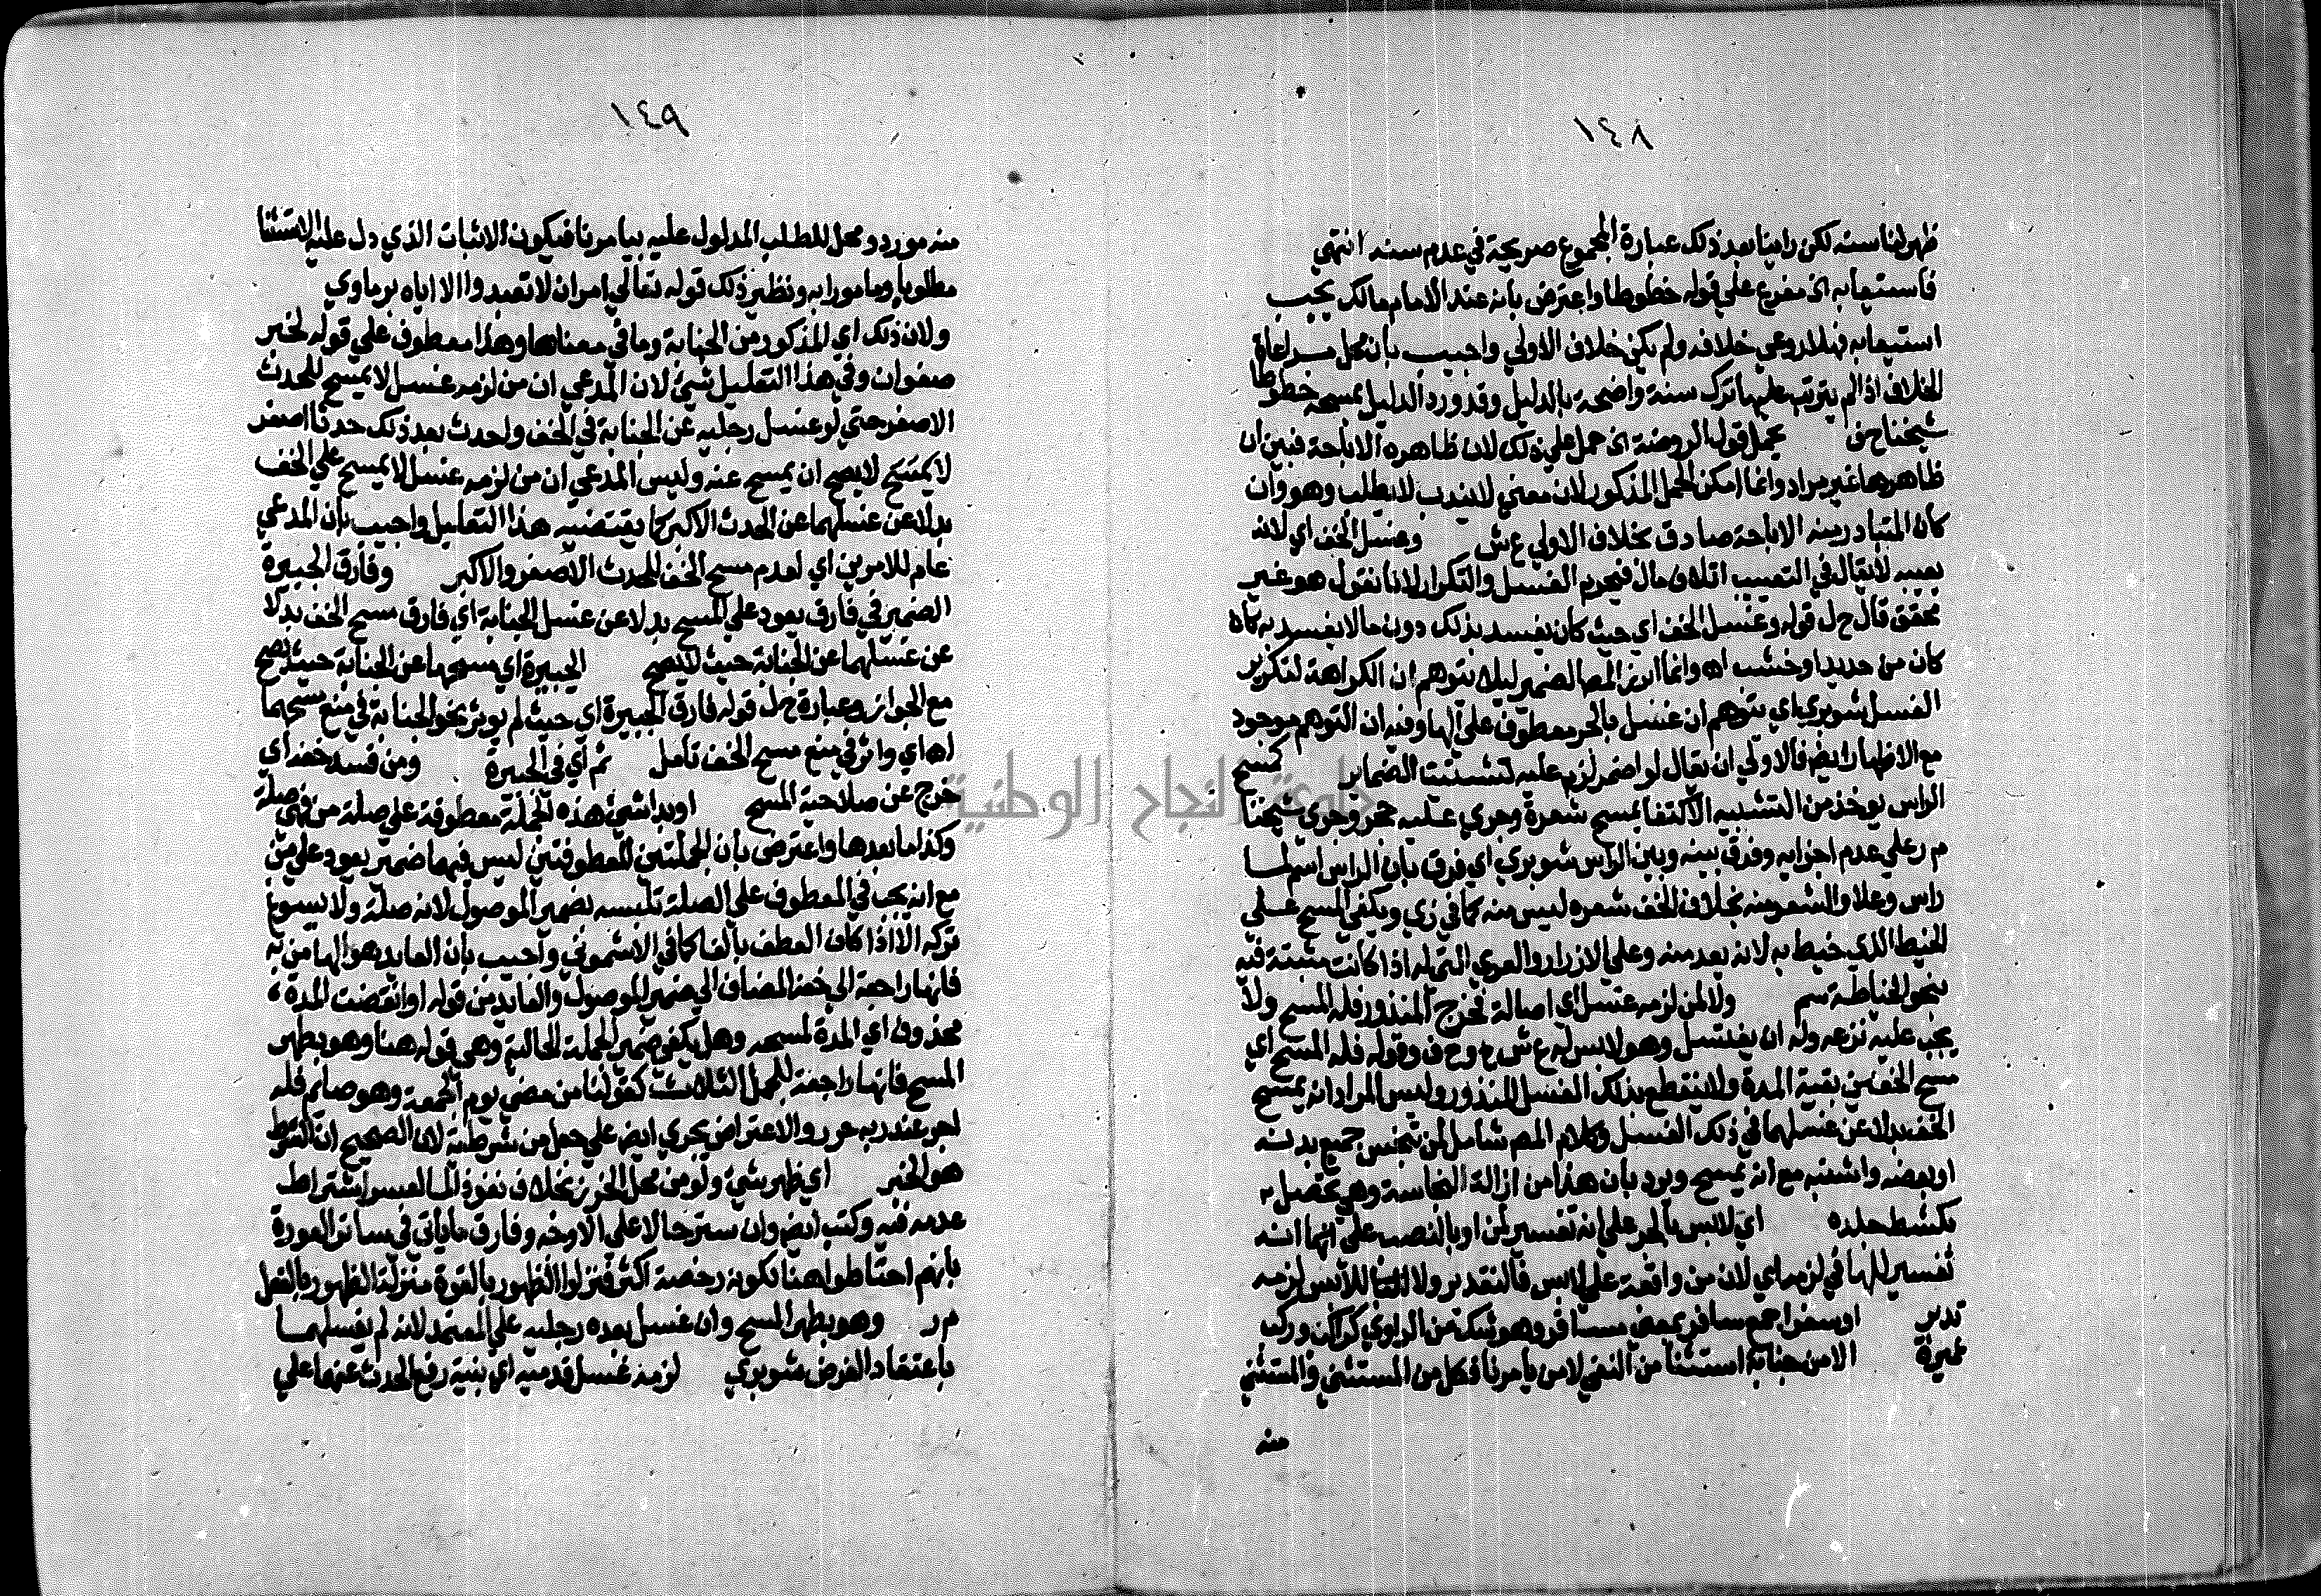 ١٤٨
ظهر لنا سنه لكن راينا بعد ذلك عبارة المجموع صريحة في عدم سنه انتهى
فاستيعابه الخ مفرع علي قوله خطوطا واعترض بانه عند الامام مالك يجب
استيعابه فهلا روعي خلافه ولم يكن خلاف الاولي واجيب بان محل مراعاة
الخلاف اذا لم يترتب عليها ترك سنة واضحة بالدليل وقد ورد الدليل بمسحه خطوطا
شيخناح ف يحمل قول الروضة الخ حمل علي ذلك لان ظاهره الاباحة فبين ان
ظاهرها غير مراد وانما امكن الحمل المذكور لان معني لا يندب لا يطلب وهو وان
كان المتبادر منه الاباحة صادق بخلاف الاولي ع ش وغسل الخف اي لانه
يعيبه لا يقال في التعييب اتلاف مال فيحرم الغسل والتكرار لانا نقول هو غير
محقق قال ح ل قوله وغسل الخف اي حيث كان يفسد بذلك دون ما لا يفسد به كان
كان من حديد او خشب اه وانما ابرز المصـ الضمير ليلا يتوهم ان الكراهة لتكرير
الغسل شوبري اي يتوهم ان غسل بالجر معطوف علي الها وفيه ان التوهم موجود
مع الاظهار ايضـ فالاولي ان يقال لو اضمر لزم عليه تشتيت الضماير كمسح
الراس يوخذ من التشبيه الاكتفا بمسح شعرة وجري عليه حجر وجري شيخنا
م ر علي عدم اجزايه وفرق بينه وبين الراس شوبري اي فرق بان الراس اسم لما
راس وعلا والشعر منه بخلاف الخف شعره ليس منه كما في زي ويكفي المسح علي
الخيط الذي خيط به لانه يعد منه وعلي الازرار والعري التي له اذا كانت مثبتة فيه
بنحو الخياطة سم ولا لمن لزمه غسل اي اصالة فخرج المنذور فله المسح ولا
يجب عليه نزعه وله ان يغتسل وهو لابس له ع ش وح ف وقوله فله المسح اي
مسح الخف من بقية المدة ولا ينقطع بذلك الغسل المنذور وليس المراد انه يمسح
الخف بدلا عن غسلهما في ذلك الغسل وكلام المصـ شامل لمن تنجس جميع بدنه
او بعضه واشتبه مع انه يمسح ويرد بان هذا من ازالة النجاسة وهي تحصل بـ
بكشط جلده اي لابس بالجر علي انه تفسير لمن او بالنصب علي انها انه
تفسير للها في لزمه اي لان من واقعة علي لابس فالتقدير ولا للابس لزمه
تدبر او سفرا جمع سافر بمعني مسافر وهو شك من الراوي كراكب وركب
عميرة الا من جنابة استثنا من النفي لا من يامرنا فكل من المستثني والمستثني
منه
١٤٩
منه مورد ومحل للطلب المدلول عليه بيامرنا فيكون الاثبات الذي دل عليه الاستثنا
مطلوبا ومامورا به ونظير ذلك قوله تعالي امر ان لا تعبدوا الا اياه برماوي
ولان ذلك اي المذكور من الجنابة وما في معناها وهذا معطوف علي قوله لخبر
صفوان وفي هذا التعليل شئ لان المدعي ان من لزمه غسل لا يمسح للحدث
الاصغر حتي لو غسل رجليه عن الجنابة في الخف واحدث بعد ذلك حدثا اصغر
لا يمسح لا يصح ان يمسح عنه وليس المدعي ان من لزمه غسل لا يمسح علي الخف
بدلا عن غسلهما عن الحدث الاكبر كما يقتضيه هذا التعليل واجيب بان المدعي
عام للامرين اي لعدم مسح الخف للحدث الاصغر والاكبر وفارق الجبيرة
الضمير في فارق يعود علي المسح بدلا عن غسل الجنابة اي فارق مسح الخف بدلا
عن غسلهما عن الجنابة حيث لا يصح الجبيرة اي مسحها عن الجنابة حيث يصح
مع الجواز وعبارة ح ل قوله فارق الجبيرة اي حيث لم يوثر نحو الجنابة في منع مسحهما
اه اي واثر في منع مسح الخف تامل ثم اي في الجبيرة ومن فسد خفه اي
خرج عن صلاحية المسح او بدا شئ هذه الجملة معطوفة علي صلة من فهي صلة
وكذا ما بعدها واعترض بان الجملتين المعطوفتين ليس فيها ضمير يعود علي من
مع انه يجب في المعطوف علي الصلة تلبسه بضمير الموصول لانه صلة ولا يسوغ
تركه الا اذا كان العطف بالفا كما في الاشموني واجيب بان العايد هو الها من به
فانها راجعة الي خفه المضاف الي ضمير الموصول والعايد من قوله او انقضت المدة
محذوف اي المدة لمسحه وهل يكفي ضمير الجملة الحالية وهي قوله هنا وهو بطهر
المسح فانها راجعة للجمل الثلاث كقولنا من مضي يوم الجمعة وهو صائم فله
اجر عند ربه حرر والاعتراض يجري ايضـ علي جعل من شرطية لان الصحيح ان الشرط
هو الخبر اي ظهر شئ ولو من محل الخرز بخلاف نفوذ الما العسر اشتراط
عدمه فيه وكتب ايضـ وان ستر حالا علي الاوجه وفارق ما ياتي في ساتر العورة
بانهم احتاطوا هنا لكونه رخصة اكثر فنزلوا الظهور بالقوة منزلة الظهور بالفعل
م ر وهو بطهر المسح وان غسل بعده رجليه علي المعتمد لانه لم يغسلهما
باعتقاد الفرض شوبري لزمه غسل قدميه اي بنية رفع الحدث عنهما علي
جامعة النجاح الوطنية